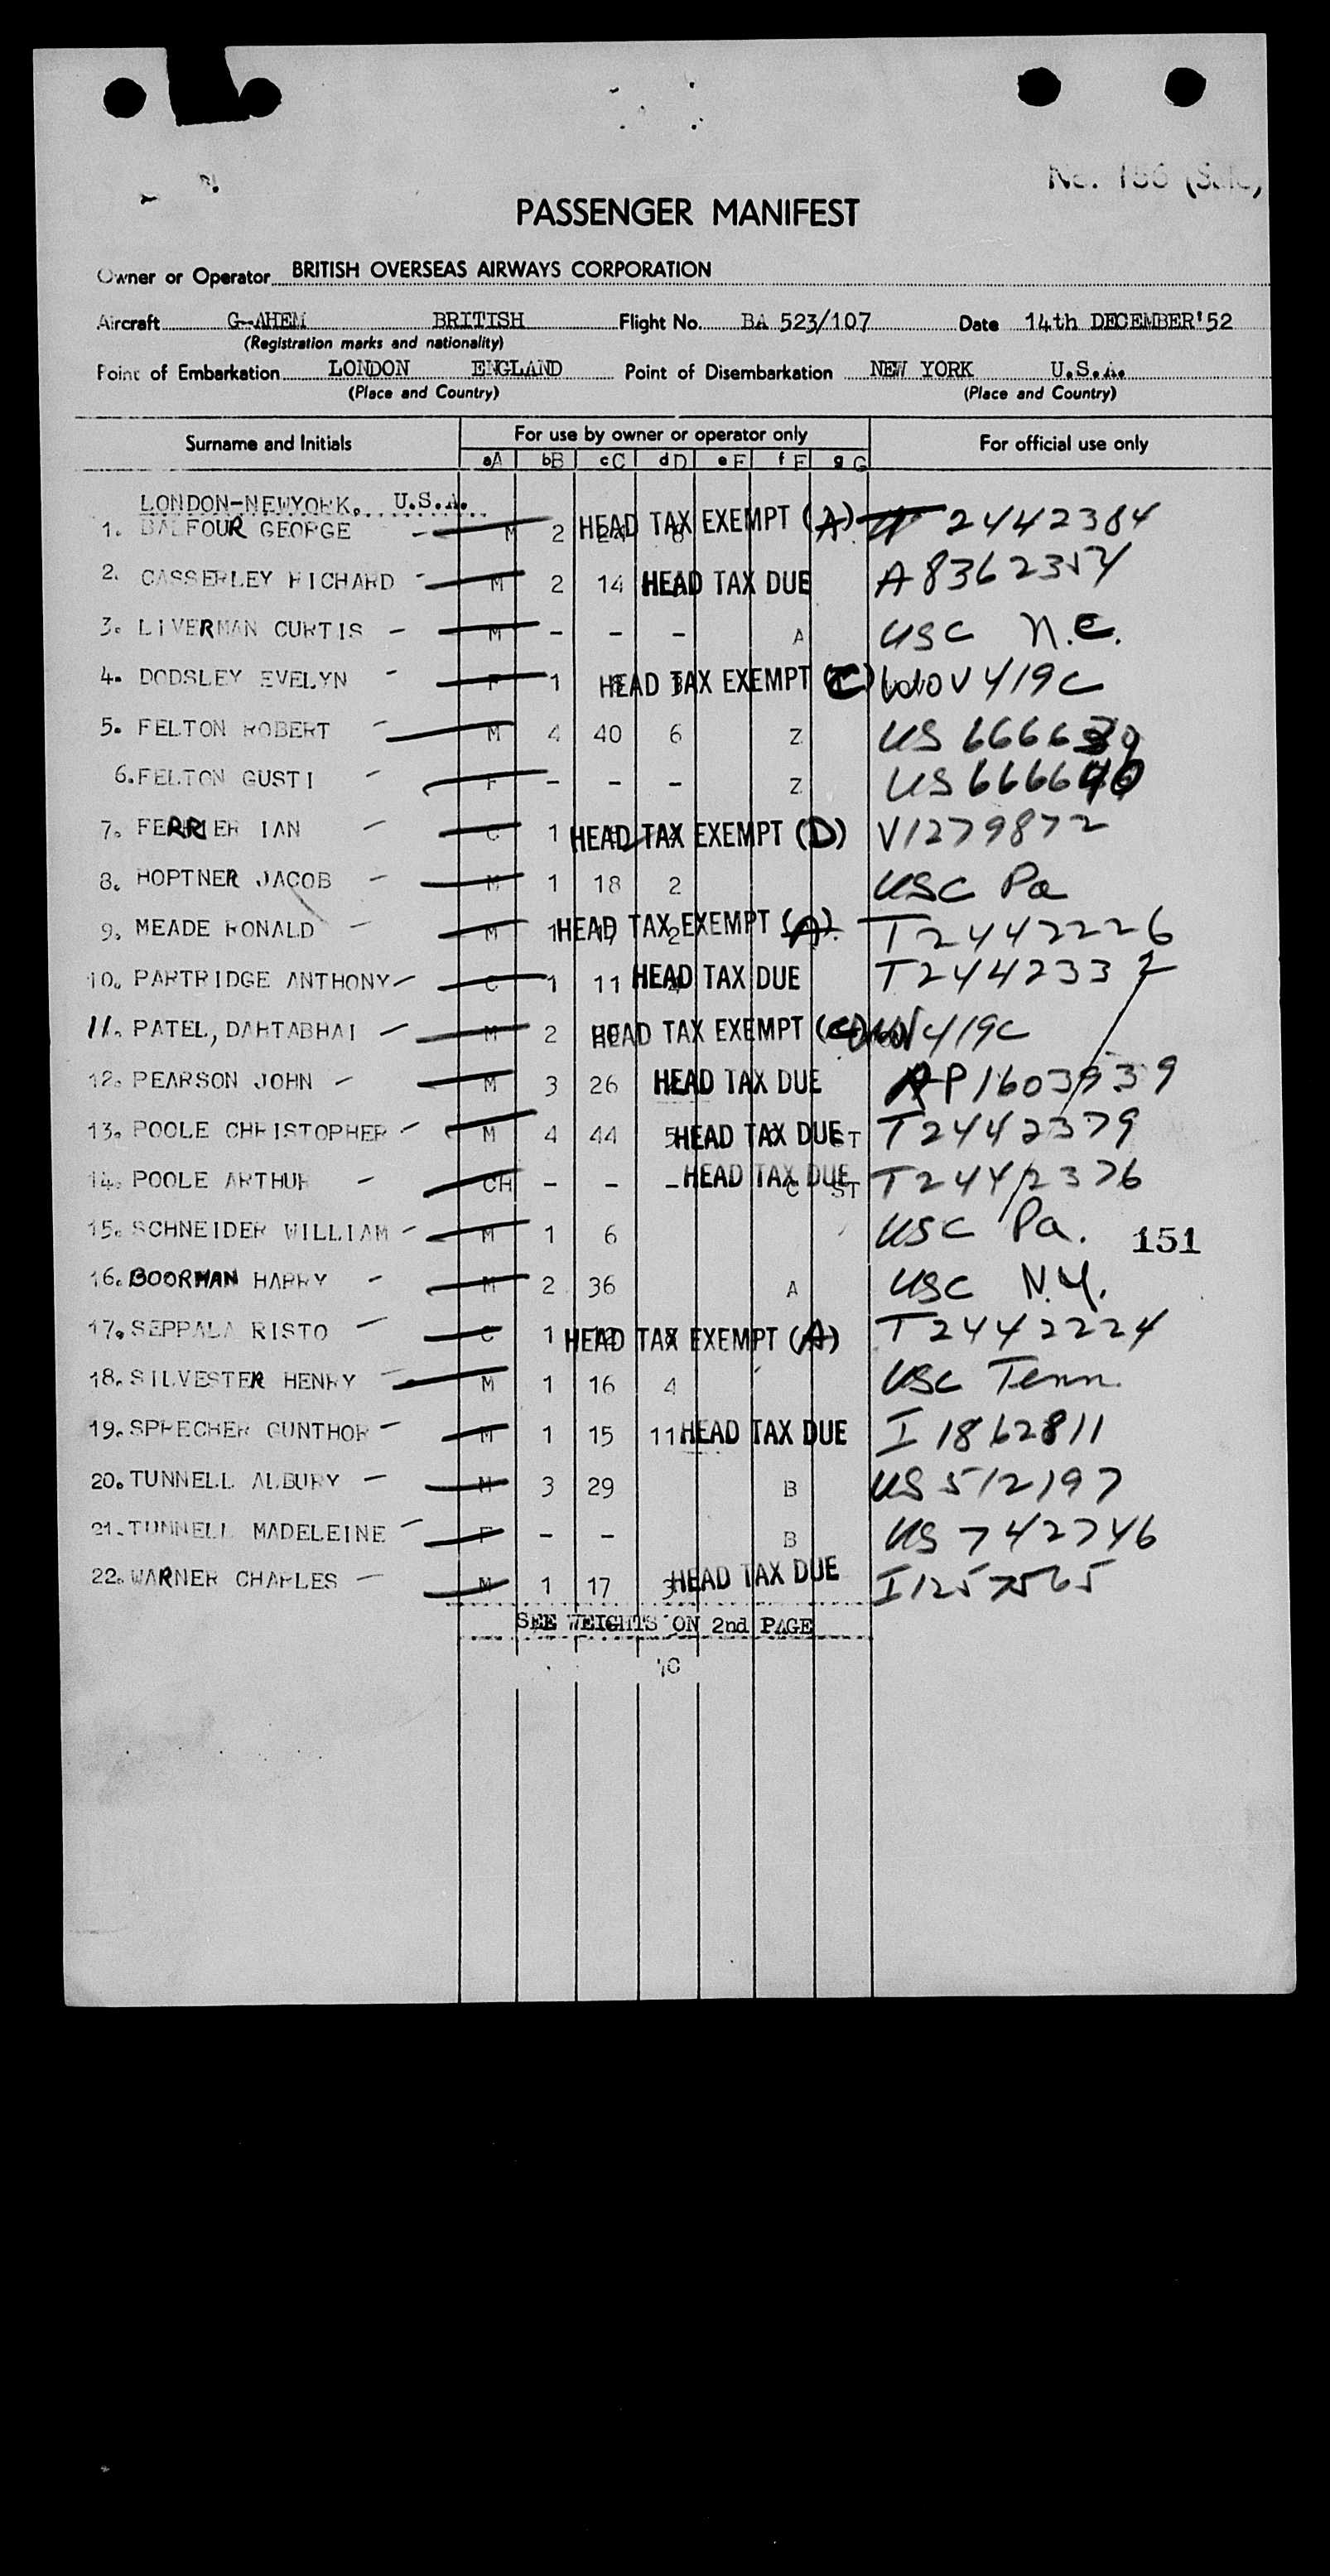 No. 156
PASSENGER MANIFEST
Owner or Operator BRITISH OVERSEAS AIRWAYS CORPORATION
Aircraft G-AHEM BRITISH Flight No. BA 523/107 Date 14th DECEMBER'52
(Registration marks and nationality)
Point of Embarkation LONDON ENGLAND Point of Disembarkation NEW YORK U.S.A.
(Place and Country) (Place and Country)
Surname and Initials For use by owner or operator only For official use only
aA bB cC dD eE fF gG
LONDON-NEWYORK. U.S.A.
1. BALFOUR GEORGE - M 2 HEAD TAX EXEMPT (A) 2442384
2. CASSERLEY RICHARD - M 2 14 HEAD TAX DUE A8362354
3. LIVERMAN CURTIS - M - - - A USC N.C.
4. DODSLEY EVELYN - F 1 HEAD TAX EXEMPT (C) V419C
5. FELTON ROBERT - M 4 40 6 Z US 666639
6. FELTON GUSTI - F - - - Z US 666640
7. FERRIER IAN - C 1 HEAD TAX EXEMPT (D) V1279872
8. HOPTNER JACOB - M 1 18 2 USC Pa
9. MEADE RONALD - M 1 HEAD TAX EXEMPT (A) T2442226
10. PARTRIDGE ANTHONY - C 1 11 HEAD TAX DUE T2442332
11. PATEL, DAHTABHAI - M 2 HEAD TAX EXEMPT (C) V419C
12. PEARSON JOHN - M 3 26 HEAD TAX DUE AP1603939
13. POOLE CHRISTOPHER - M 4 44 5 HEAD TAX DUE ST T2442379
14. POOLE ARTHUR - CH - - - HEAD TAX DUE C ST T2442376
15. SCHNEIDER WILLIAM - M 1 6 USC Pa. 151
16. BOORMAN HARRY - M 2 36 A USC N.Y.
17. SEPPALA RISTO - C 1 HEAD TAX EXEMPT (A) T2442224
18. SILVESTER HENRY - M 1 16 4 USC Tenn.
19. SPRECHER GUNTHOR - M 1 15 11 HEAD TAX DUE I 1862811
20. TUNNELL ALBURY - M 3 29 B US 512197
21. TUNNELL MADELEINE - F - - B US 742746
22. WARNER CHARLES - M 1 17 3 HEAD TAX DUE I1257565
SEE WEIGHTS ON 2nd PAGE